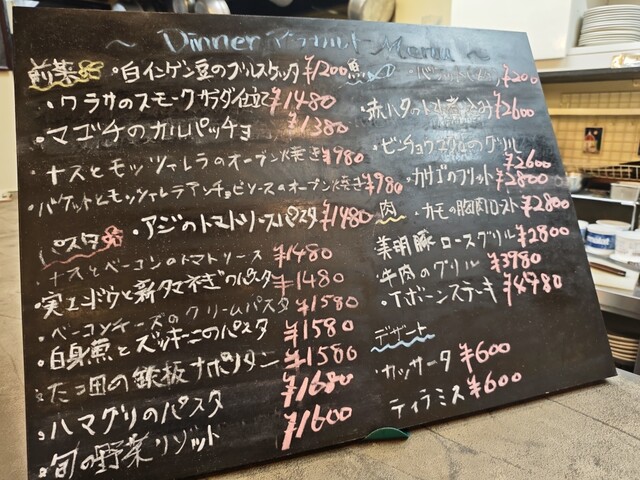 ~ Dinner アラカルト Menu ~
前菜 ・白インゲン豆のブルスケッタ ¥1200
・ワラサのスモークサラダ仕立て ¥1480
・マゴチのカルパッチョ ¥1380
・ナスとモッツァレラのオーブン焼き ¥980
・バゲットとモッツァレラアンチョビソースのオーブン焼き ¥980
パスタ ・アジのトマトソースパスタ ¥1480
・ナスとベーコンのトマトソース ¥1480
・実エンドウと新タマネギのパスタ ¥1480
・ベーコンチーズのクリームパスタ ¥1580
・白身魚とズッキーニのパスタ ¥1580
の鉄板ナポリタン ¥1580
・ハマグリのパスタ ¥1680
・旬の野菜リゾット ¥1600
魚 ・バゲット ¥200
・赤ハタのトマト煮込み ¥2600
・ビンチョウマグロのグリル ¥2600
・カサゴのフリット ¥2800
肉 ・カモの胸肉ロスト ¥2800
・美明豚ロースグリル ¥2800
・牛肉のグリル ¥3980
・Tボーンステーキ ¥4980
デザート
・カッサータ ¥600
・ティラミス ¥600